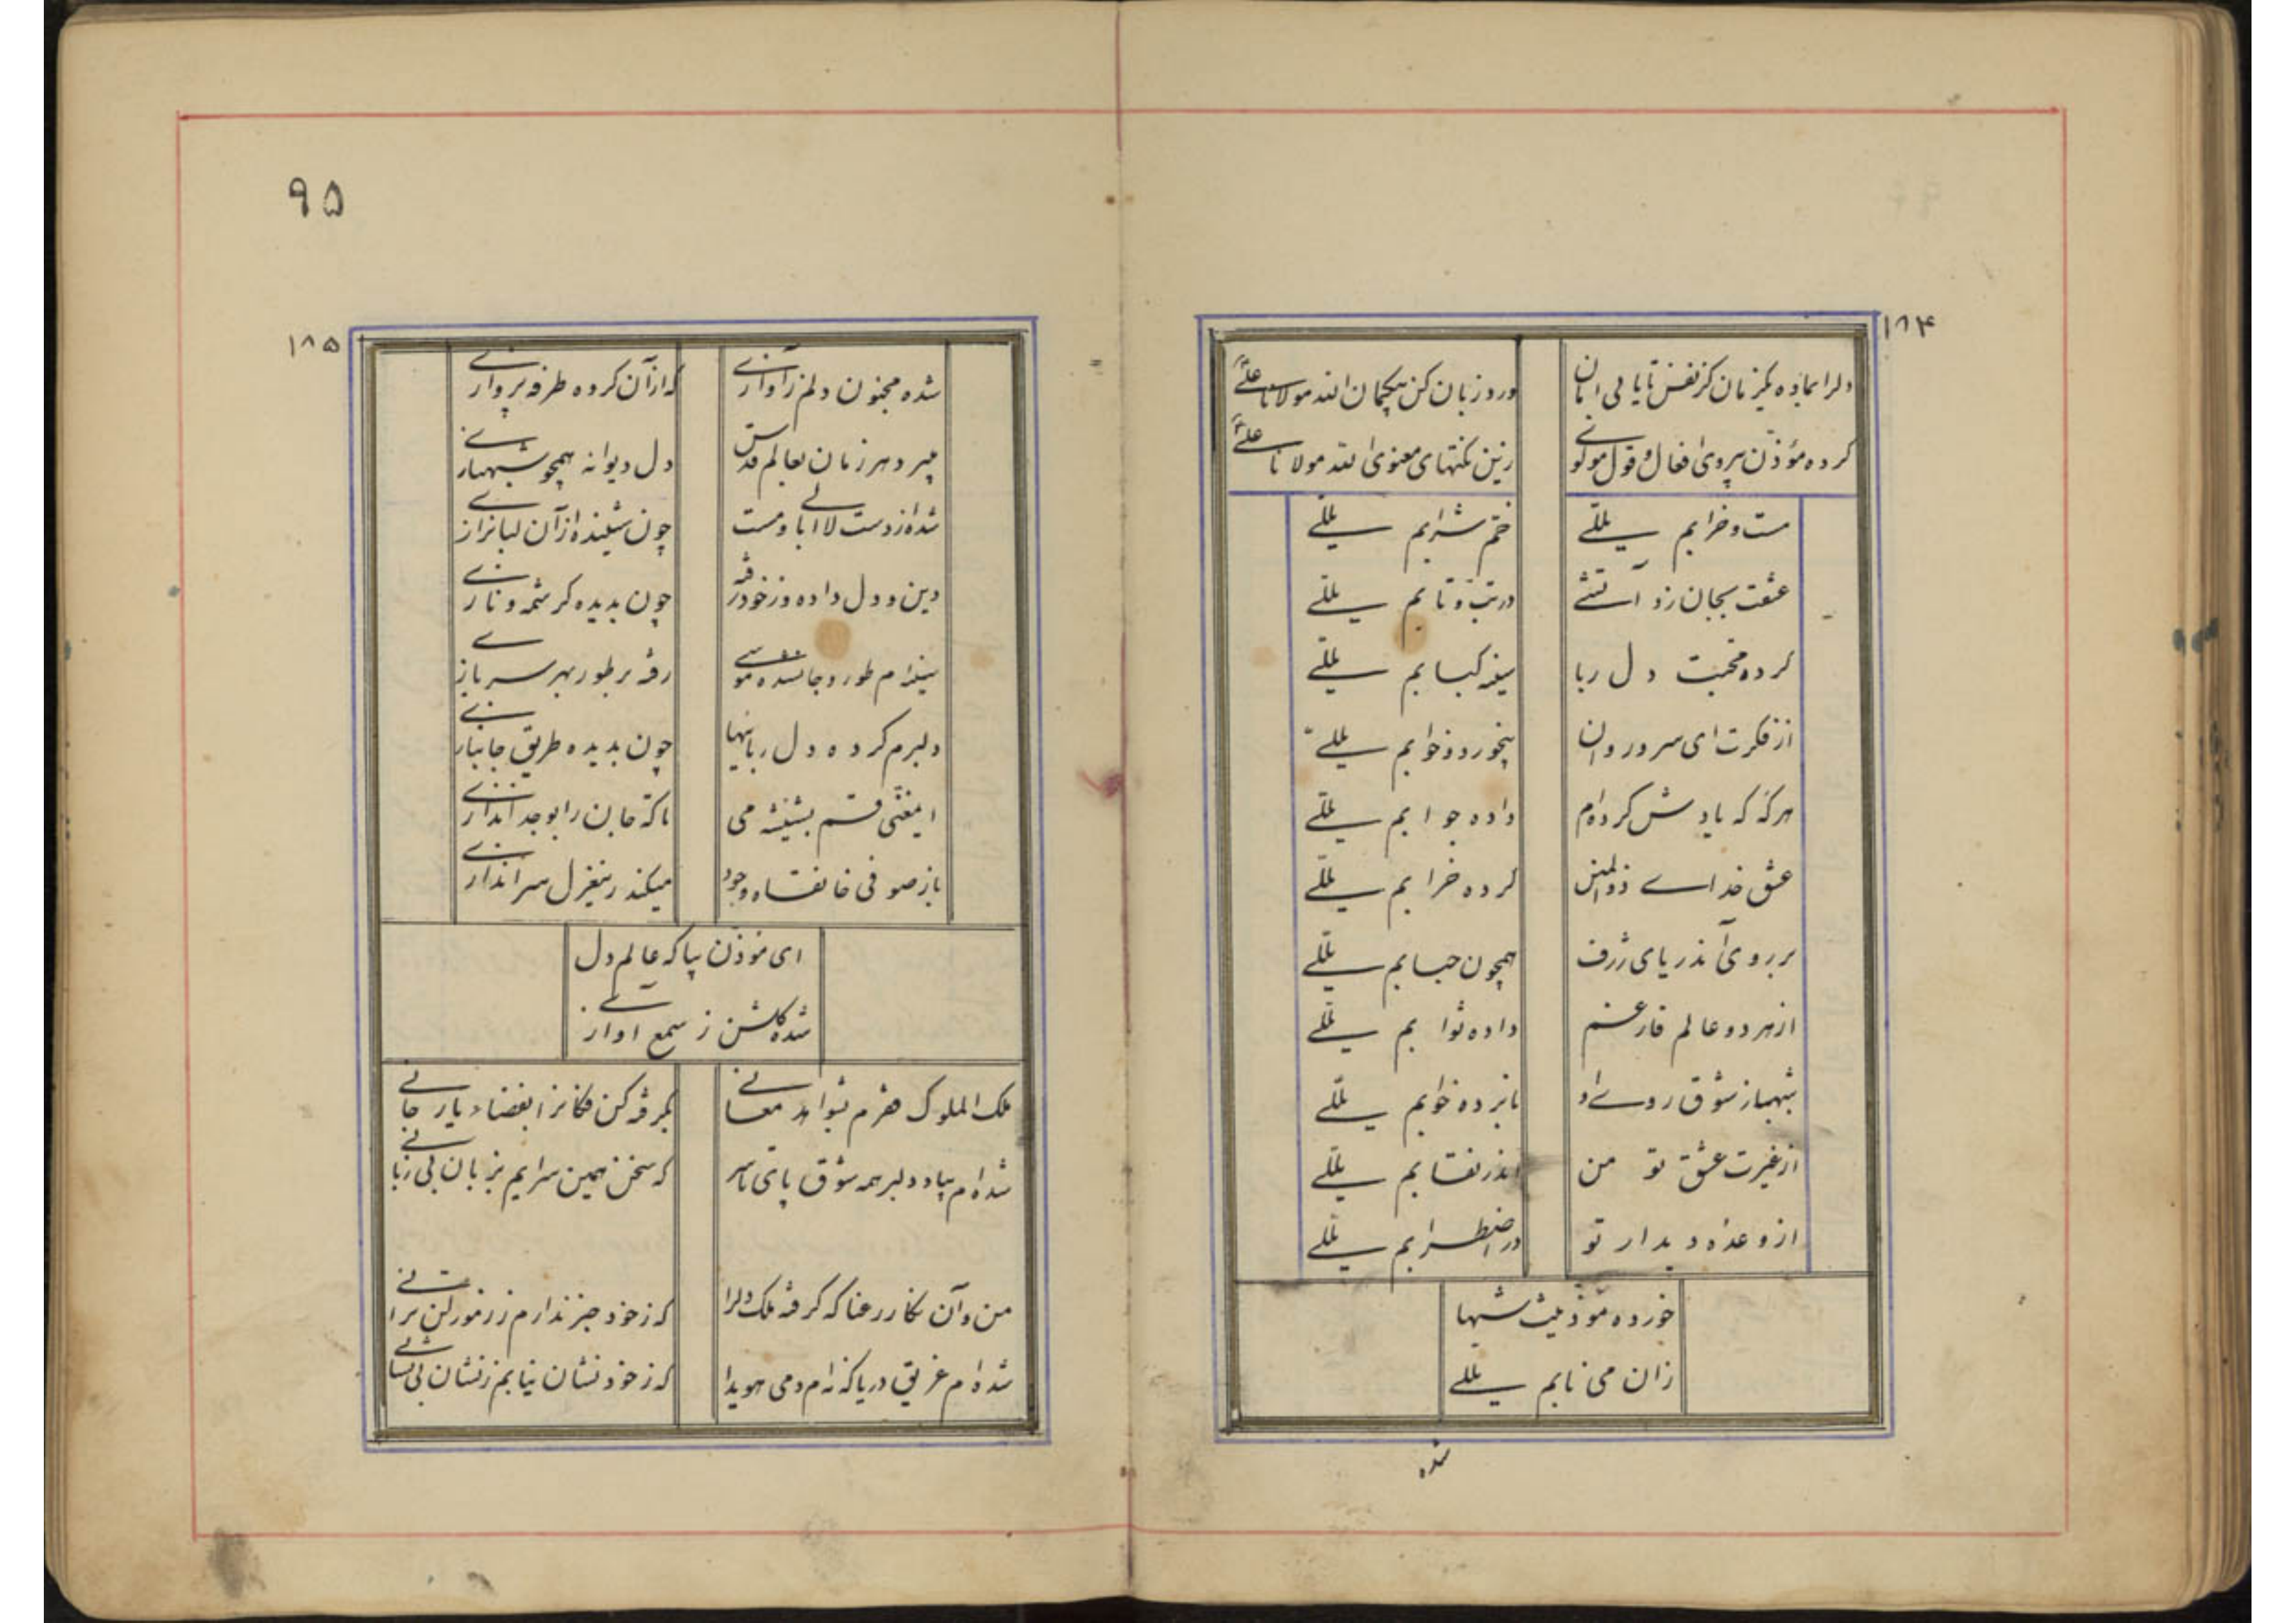 ۱۸۴
ورد زبان کن بیگمان الله مولانا علی
کرده مؤذن پیروی افعال و قول مولوی
زین نکتهای معنوی الله مولانا علی
مست و خرابم یللے
ختم شرابم یللے
عشقت بجان زد آتشے
در تب و تابم یللے
کرده محبت دل ربا
سینه کبابم یللے
از فکرت ای سرو روان
بیخورد و خوابم یللے
هر گه که یادش کرده‌ام
داده جوابم یللے
عشق خداے ذوالمنن
کرده خرابم یللے
بر روی آن دریای ژرف
همچون حبابم یللے
از هر دو عالم فارغم
داده ثوابم یللے
شهباز شوق روے او
تا برده خوابم یللے
از غیرت عشق تو من
اندر نقابم یللے
از وعده دیدار تو
در اضطرابم یللے
خورده مؤذن میت شبها
زان می نابم یللے
شده
۹۵
۱۸۵
شده مجنون دلم ز آوازے
که از آن کرده طرفه پروازے
میپرد هر زمان بعالم قدس
دل دیوانه همچو شهبازے
شده از دست لاابالے و مست
چون شنیده از آن لبان رازے
دین و دل داده و ز خود رفته
چون بدیده کرشمه و نازے
سینه‌ام طور و جان شده موسے
رفته بر طور بهر سربازے
دلبرم کرده دل رباییها
چون بدیده طریق جانبازے
ای مغنی قسم بشیشه می
تا که جان را بوجد اندازے
باز صوفی خانقاه وجود
میکند زین غزل سراندازے
ای مؤذن بیا که عالم دل
شده گلشن ز سمع آوازے
ملک الملوک عشقم معانے
شده‌ام بیاد دلبر همه شوق پای تا سر
که سخن همین سرایم بزبان بی زبانے
من و آن نگار رعنا که گرفته ملک دلرا
که ز خود خبر ندارم ز رموز لن ترانے
شده‌ام غریق دریا که نه‌ام دمی هویدا
که ز خود نشان نیابم ز نشان بی نشانے